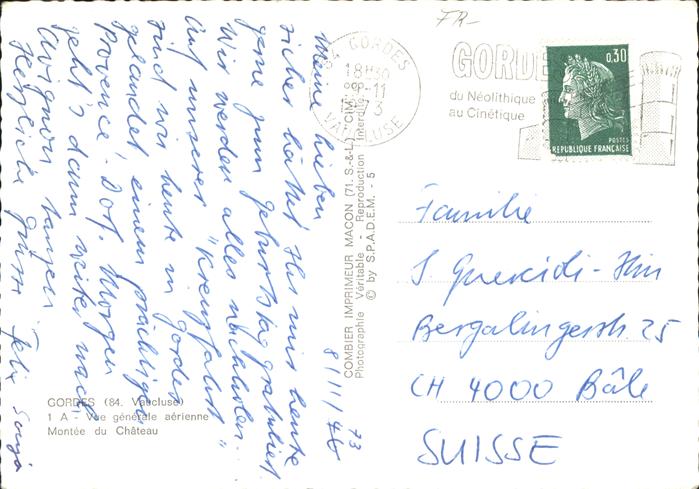 FR-
84 GORDES
18H30
8-11
1973
VAUCLUSE
GORDES
du Néolithique
au Cinétique
0,30
POSTES
REPUBLIQUE FRANÇAISE
73
8/11/
Meine Lieben
sicher hättet Ihr mir heute
gerne zum Geburtstag gratuliert
Wir werden alles nachholen..
Auf unserer "Kreuzfahrt"
sind wir heute in Gordes
gelandet, einem prächtigen
Provence-Dorf. Morgen
geht's dann weiter nach
Avignon tanzen
Herzliche Grüsse Felix Sonja
COMBIER IMPRIMEUR MACON (71. S-&-L) "CIM"
Photographie Véritable - Reproduction Interdite
© by S.P.A.D.E.M. - 5
Familie
Bergalingerstr. 25
CH 4000 Bâle
SUISSE
GORDES (84. Vaucluse)
1 A - Vue générale aérienne
Montée du Château